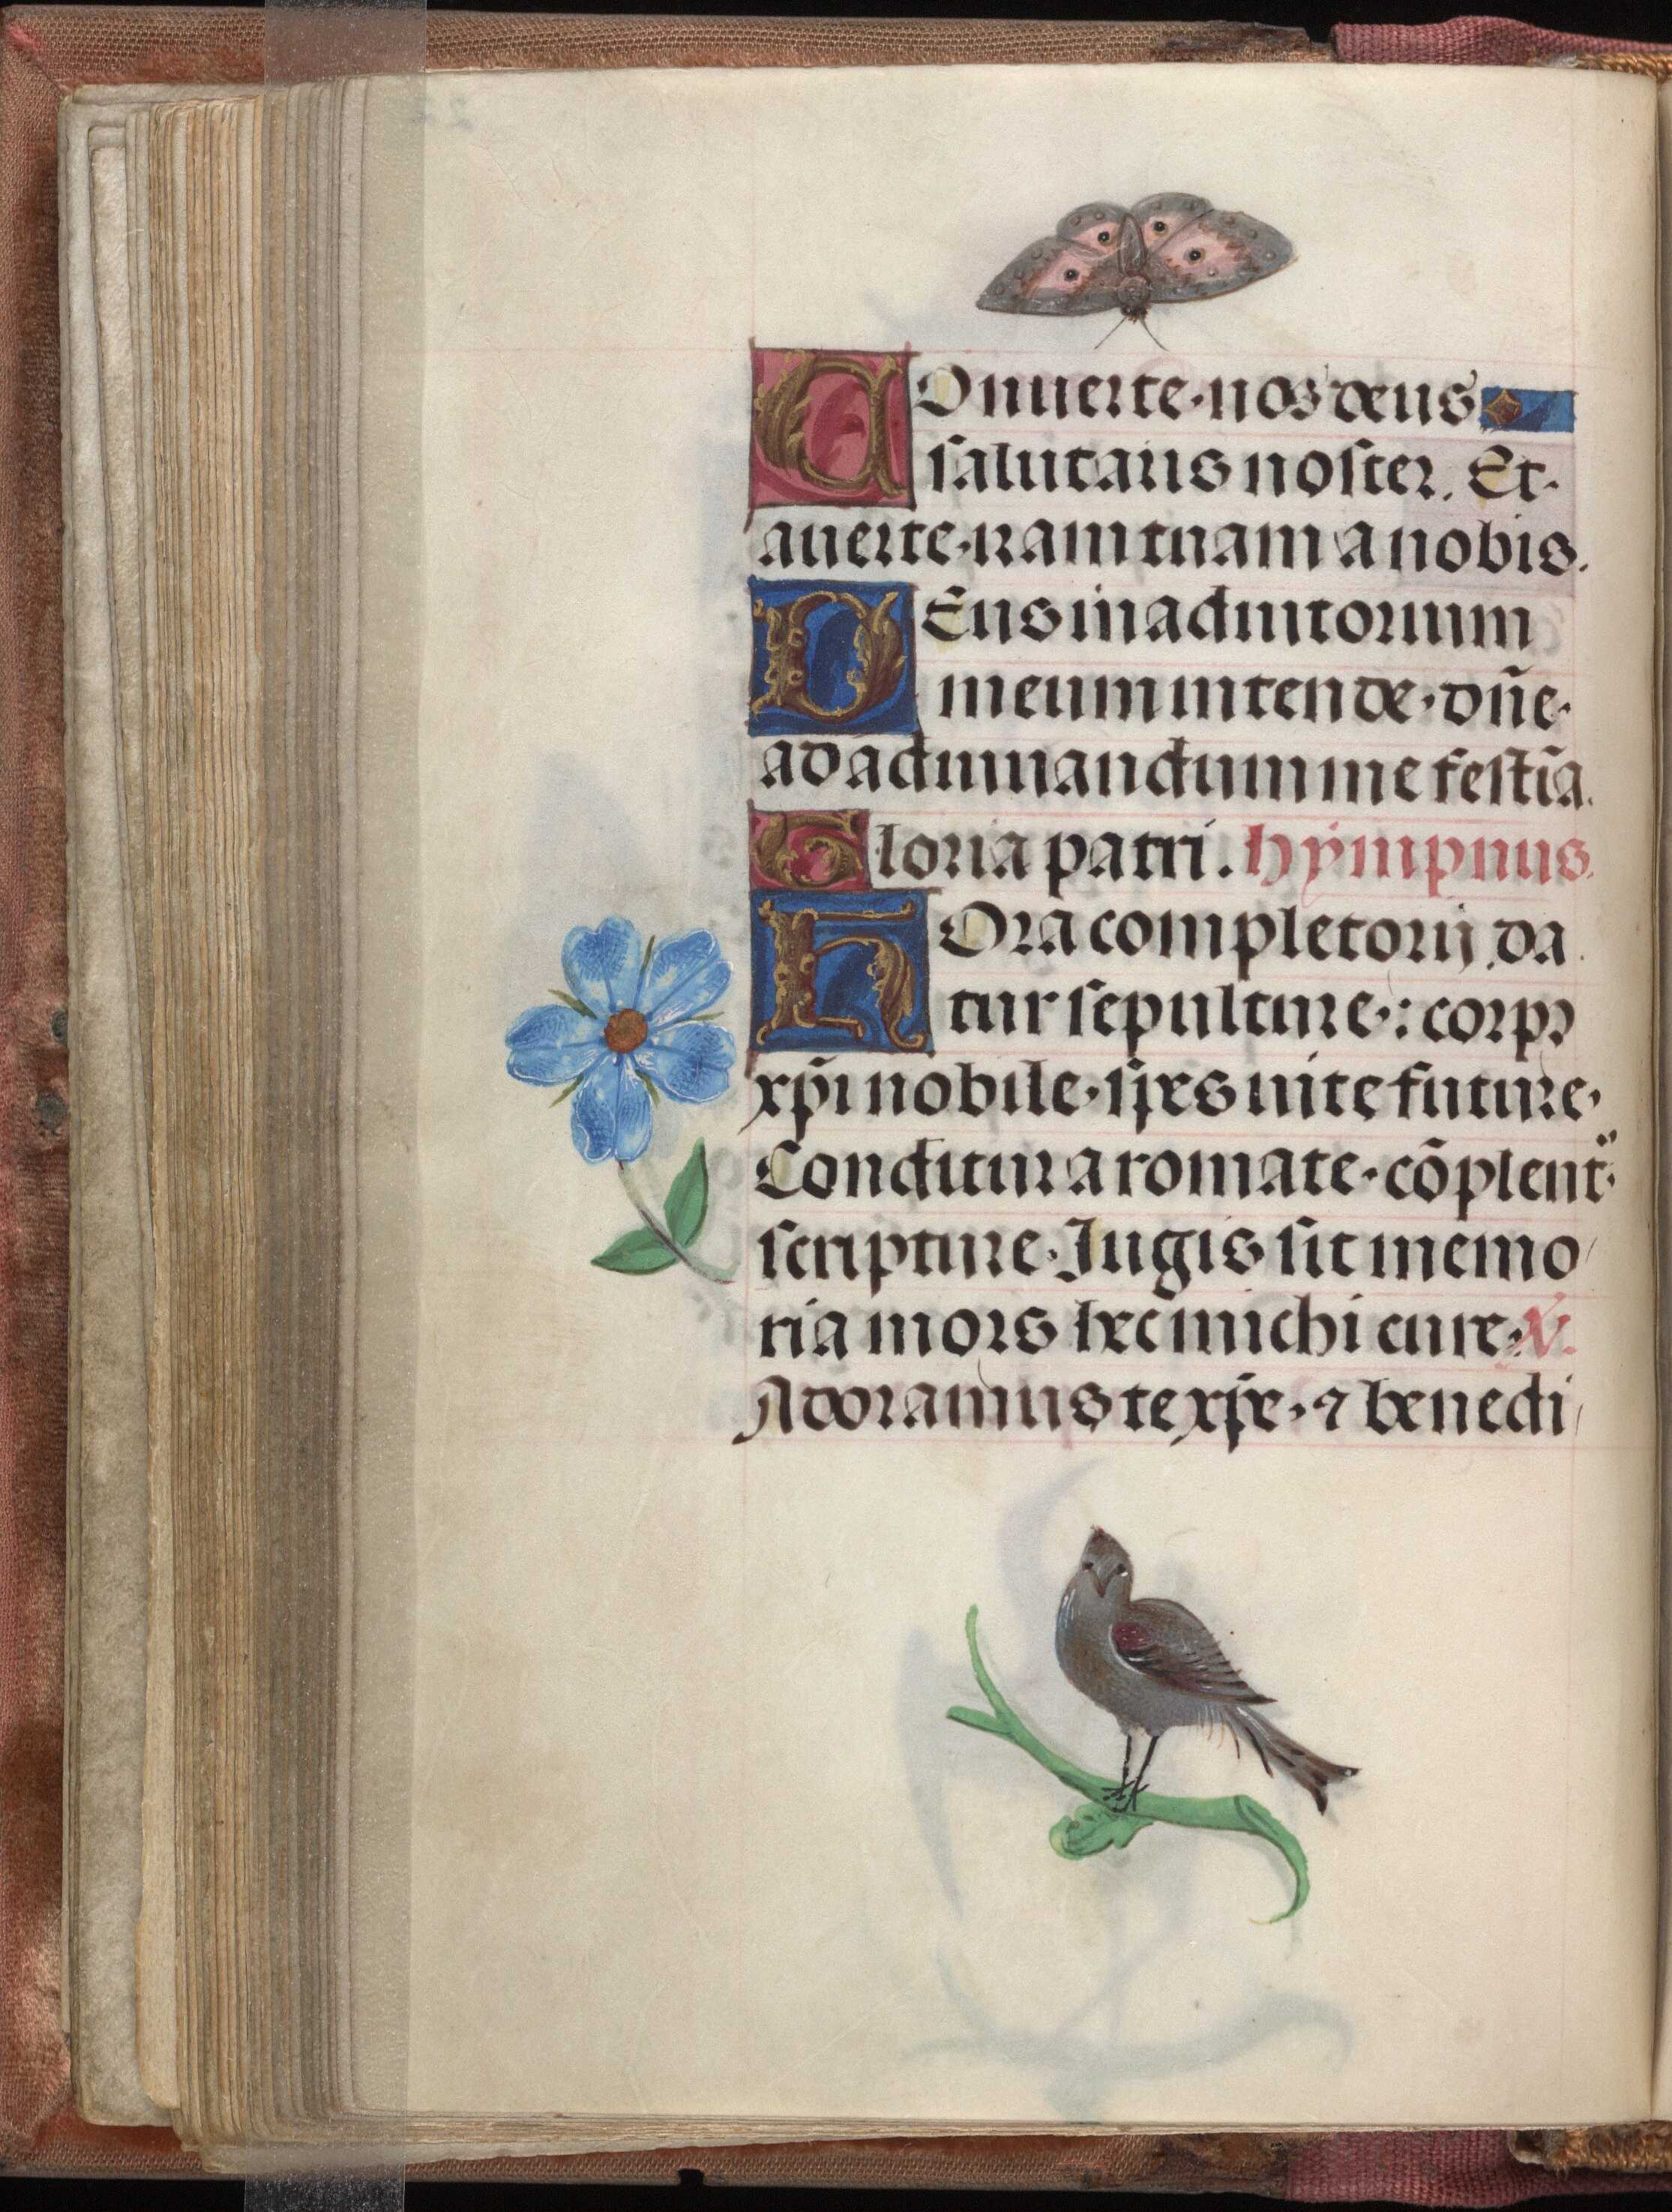 COnuerte nos deus
salutaris noster. Et
auerte iram tuam a nobis.
DEus in adiutorium
meum intende. dñe
ad adiuuandum me festīa.
Gloria patri. hympnus.
HOra completorij da
tur sepulture: corpꝰ
xp̄i nobile. spes uite future.
Conditur aromate. cōplent᷑
scripture. Jugis sit memo
ria mors hec michi cure. ℣.
Adoramus te xp̄e. ⁊ benedi